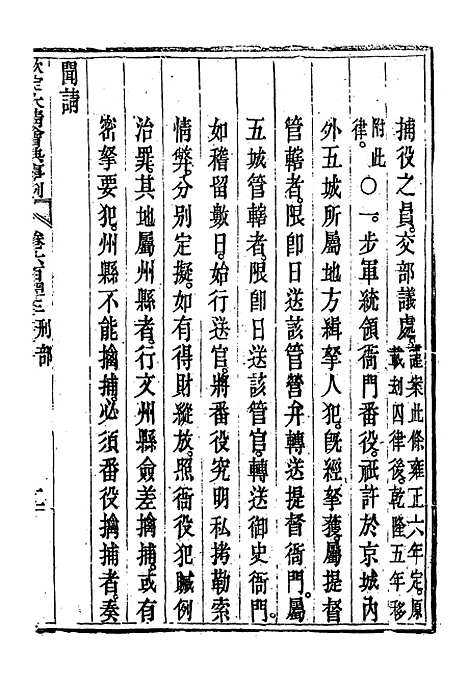 捕役之員。交部議處。謹案此條雍正六年定。原載刻囚律後。乾隆五年移附此律。
〇一。步軍統領衙門番役。祇許於京城內
外五城所屬地方緝拏人犯。旣經拏獲。屬提督
管轄者。限卽日送該管營弁轉送提督衙門。屬
五城管轄者。限卽日送該管官。轉送御史衙門。
如稽留數日。始行送官。將番役究明私拷勒索
情弊。分別定擬。如有得財縱放。照衙役犯贓例
治罪。其地屬州縣者。行文州縣僉差擒捕。或有
密拏要犯。州縣不能擒捕。必須番役擒捕者。奏
聞請
欽定大清會典事例 卷六百 刑部